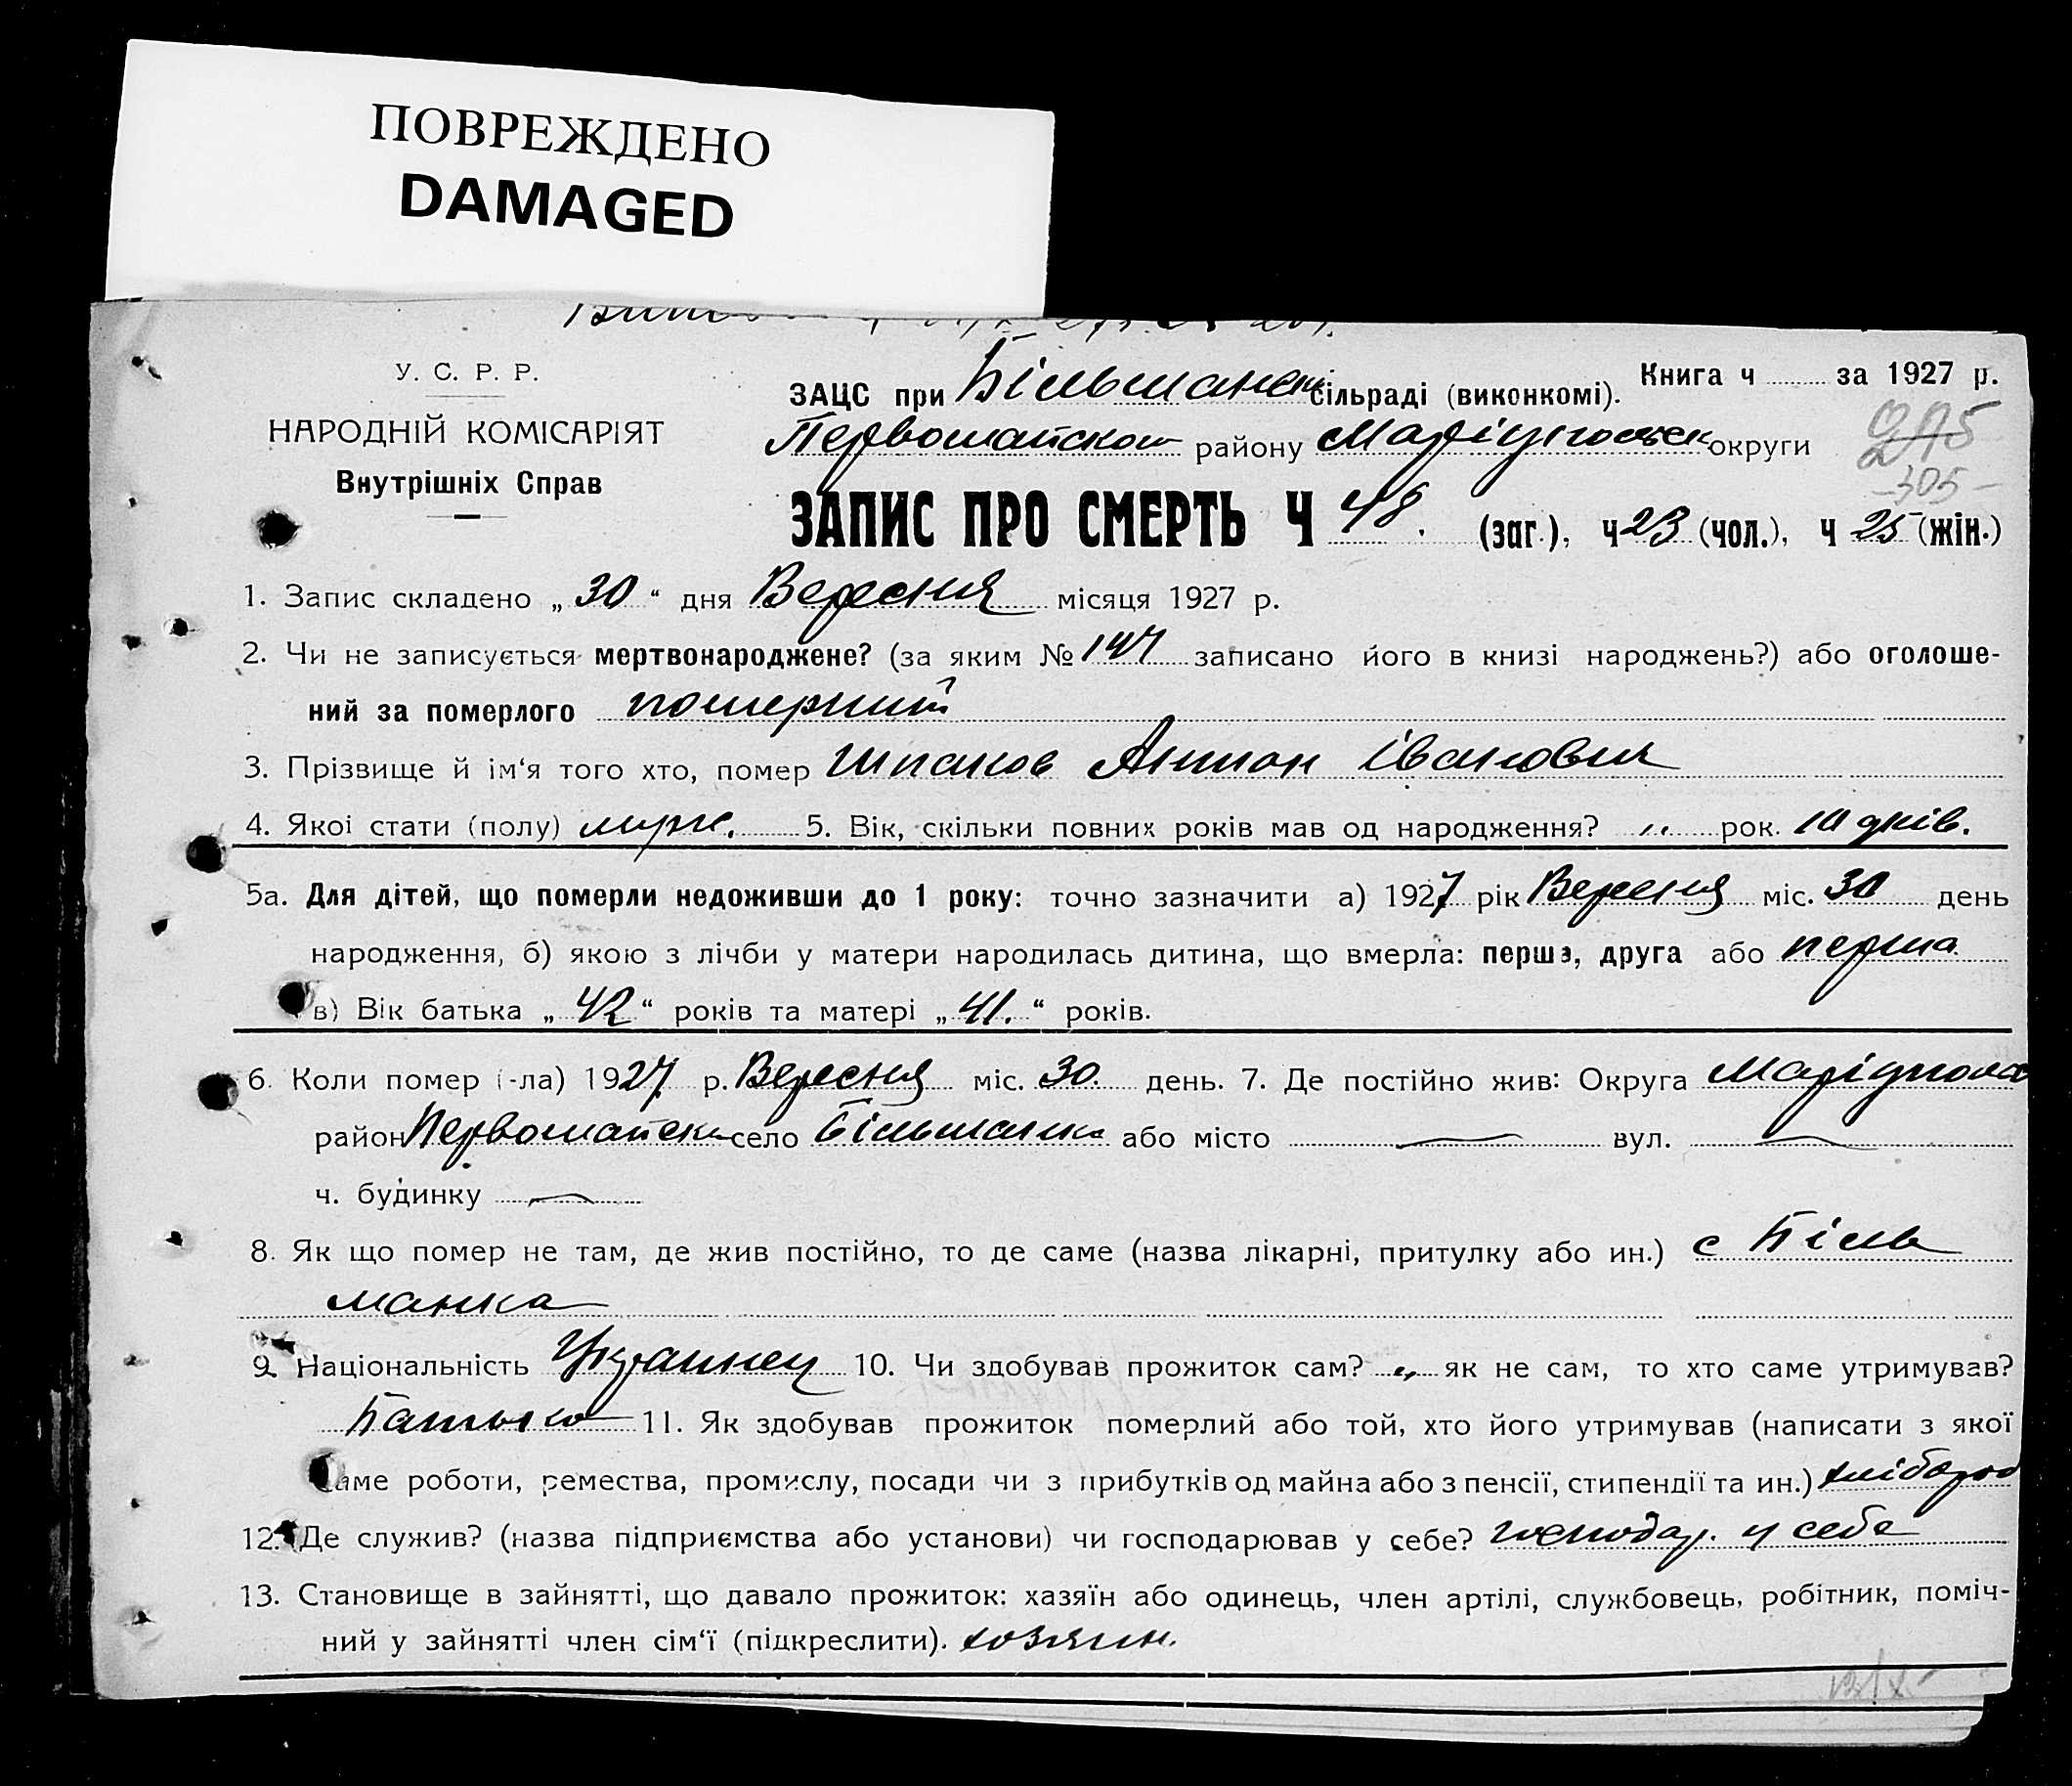 ПОВРЕЖДЕНО
DAMAGED
У. С. Р. Р.
НАРОДНІЙ КОМІСАРІЯТ
Внутрішніх Справ
ЗАЦС при Більшанск сільраді (виконкомі).
Книга ч за 1927 р.
Первомайском району Маріупольск округи
295
-305-
ЗАПИС ПРО СМЕРТЬ Ч 48. (заг.), ч 23 (чол.), ч 25 (жін.)
1. Запис складено „ 30 “ дня Вересня місяця 1927 р.
2. Чи не записується мертвонароджене? (за яким № 147 записано його в книзі народжень?) або оголоше-
ний за померлого померший
3. Прізвище й ім‘я того хто, помер Шпаков Антон Іванович
4. Якої стати (полу) муж. 5. Вік, скільки повних років мав од народження? „ рок. днів.
5а. Для дітей, що померли недоживши до 1 року: точно зазначити а) 1927 рік Вересня міс. 30 день
народження, б) якою з лічби у матери народилась дитина, що вмерла: перша, друга або перша
в) Вік батька „ 42 “ років та матері „ 41. “ років.
6. Коли помер (-ла) 1927 р. Вересня міс. 30. день. 7. Де постійно жив: Округа Маріупола
район Первомайск село Більшанка або місто — вул. —
ч. будинку —
8. Як що помер не там, де жив постійно, то де саме (назва лікарні, притулку або ин.) с Біль
манка
9. Національність Украинец 10. Чи здобував прожиток сам? „ як не сам, то хто саме утримував?
Батько 11. Як здобував прожиток померлий або той, хто його утримував (написати з якої
саме роботи, ремества, промислу, посади чи з прибутків од майна або з пенсії, стипендії та ин.) хлібороб
12. Де служив? (назва підприємства або установи) чи господарював у себе? господар. у себе
13. Становище в зайнятті, що давало прожиток: хазяїн або одинець, член артілі, службовець, робітник, поміч-
ний у зайнятті член сім‘ї (підкреслити). хозяин.